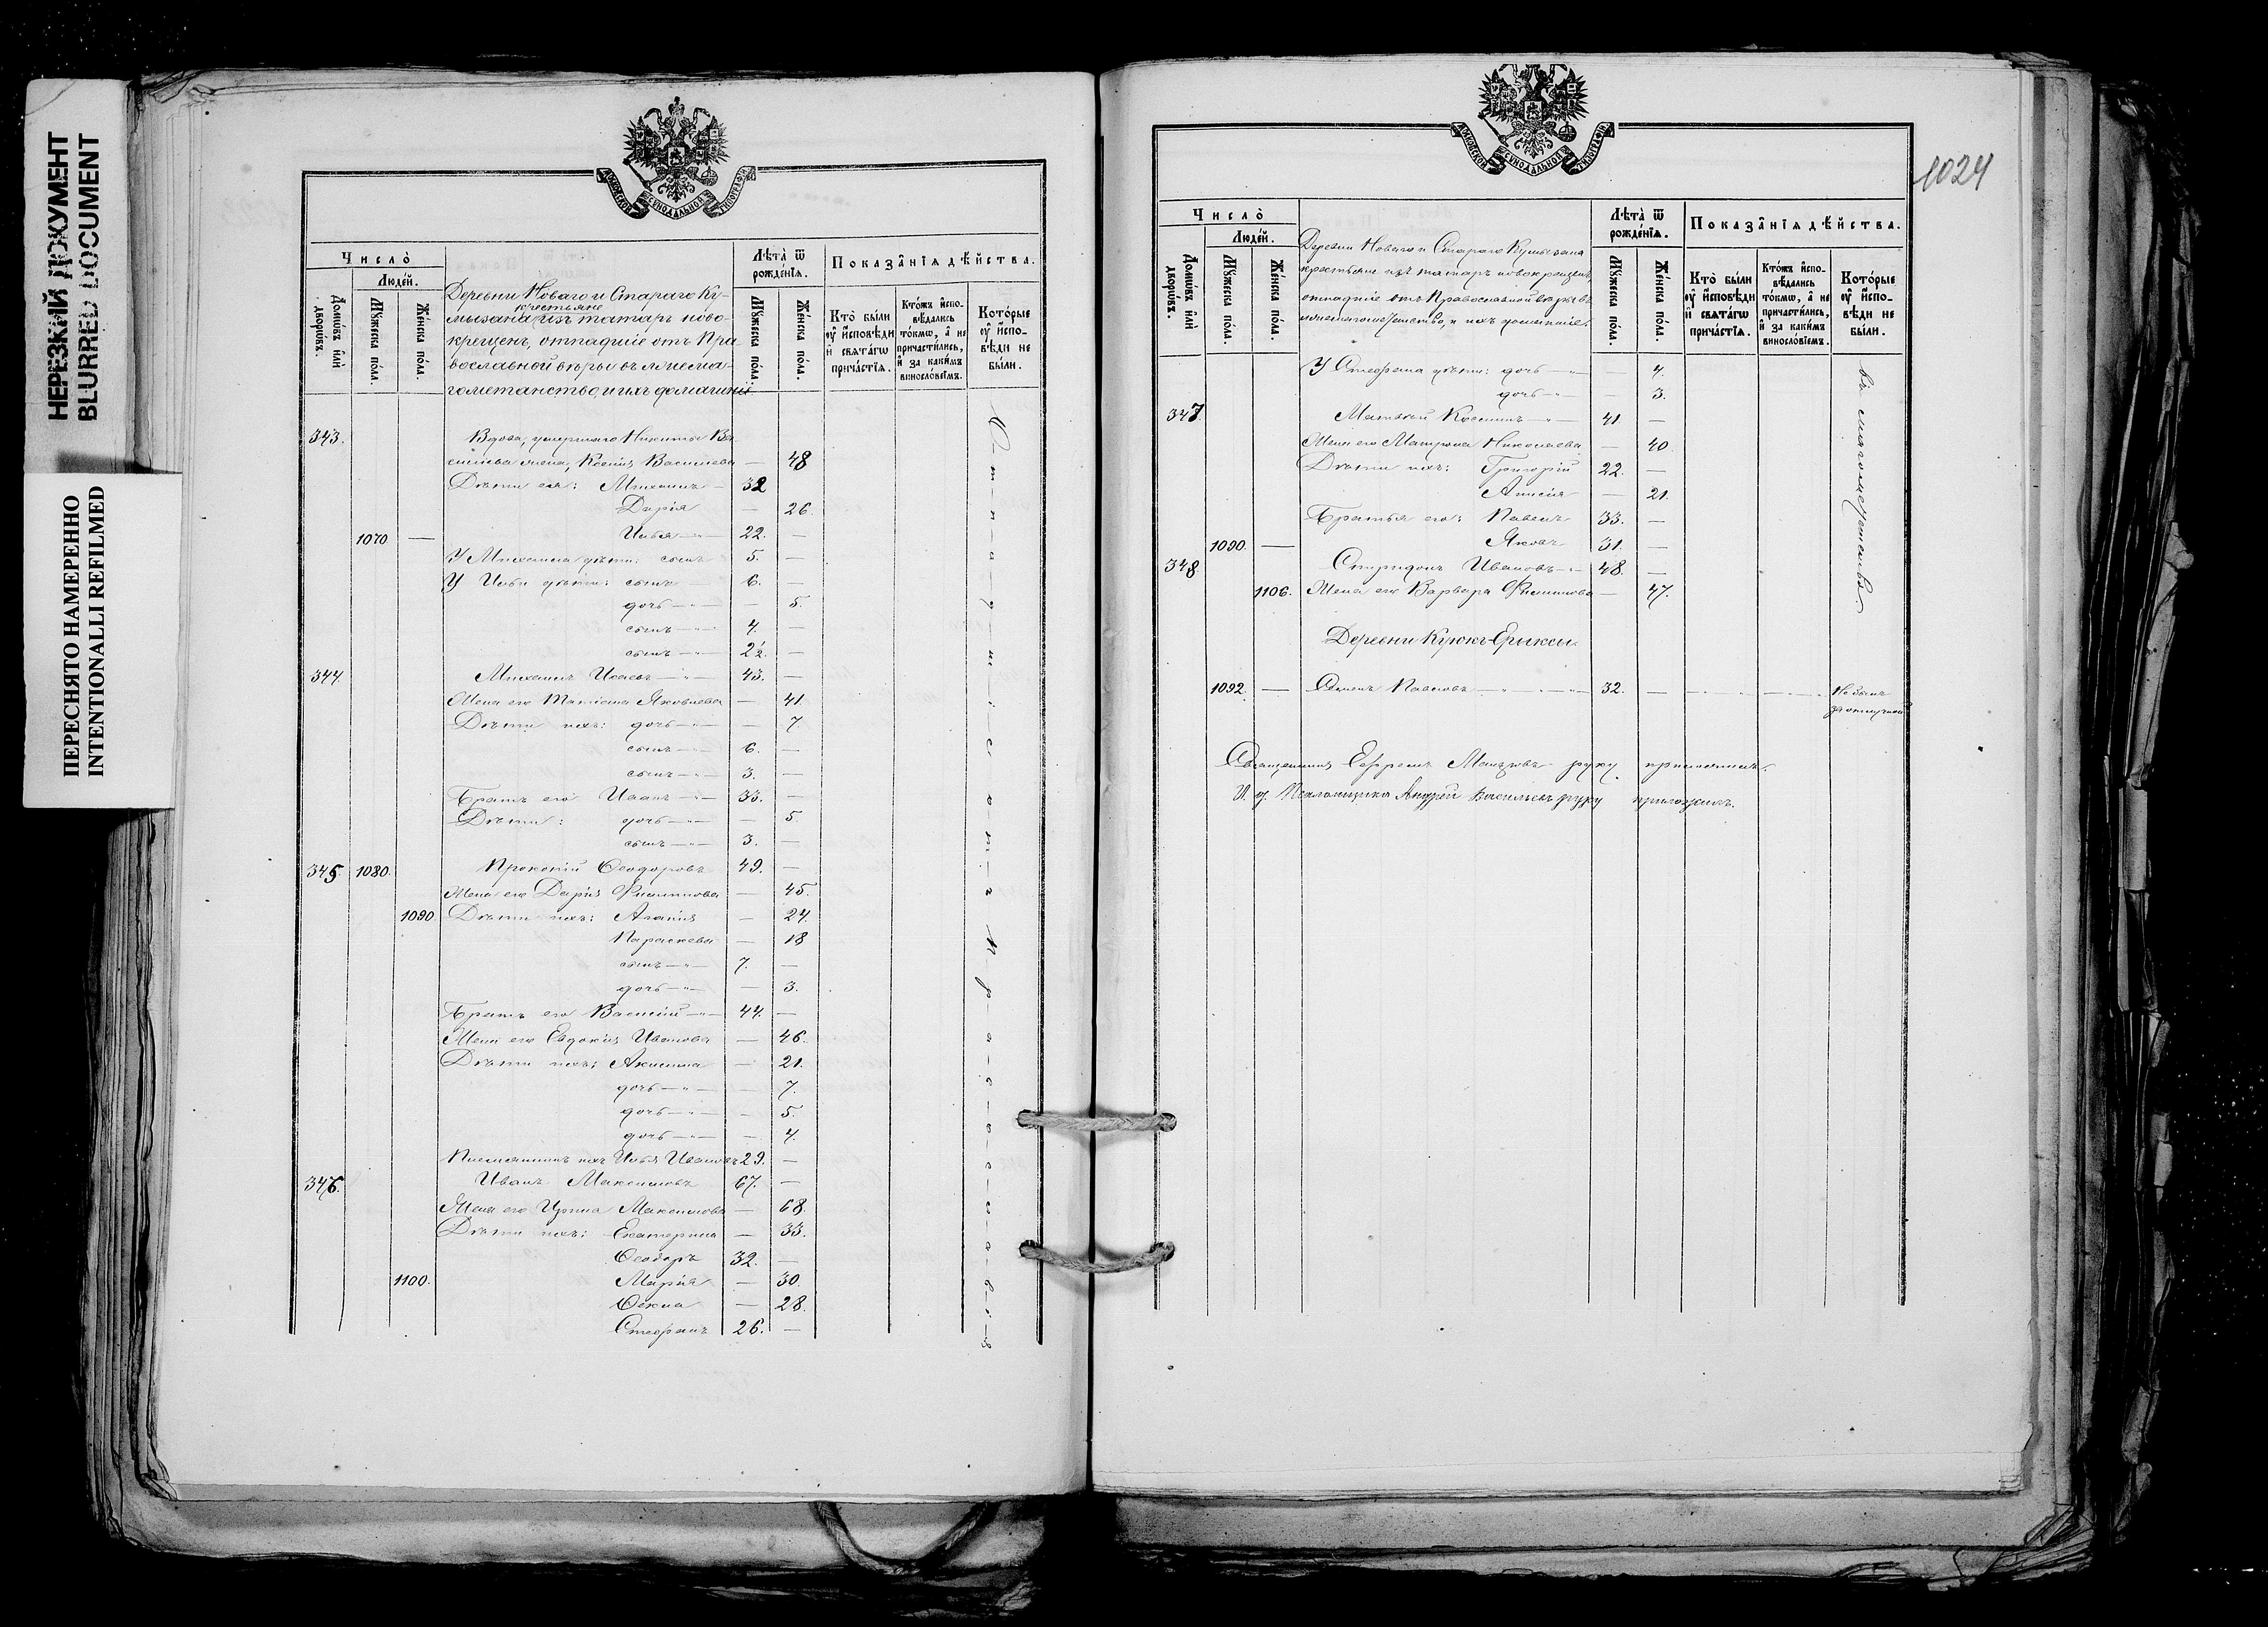 НЕРЕЗКИЙ ДОКУМЕНТ
BLURRED DOCUMENT
ПЕРЕСНЯТО НАМЕРЕННО
INTENTIONALLI REFILMED
МОСКОВСКОЙ СѴНОДАЛЬНОЙ ТИПОГРАФІИ
Число̀
Люде́й.
Домѡ́въ и҆лѝ дворѡ́въ.
Мꙋ́жеска по́ла.
Же́нска по́ла.
Деревни Новаго и Стараго Ку-
крестьяне
мызана изъ татаръ ново-
крещенъ, отпадшіе отъ Пра
вославной вѣры въ магома-
гометанство, и ихъ домашніе
Лѣ́та ѿ рожде́нїѧ.
Мꙋ́жеска по́ла.
Же́нска по́ла.
Показа̑нїѧ дѣ́йства.
Кто̀ бы́ли ᲂу҆ и҆́сповѣди и҆ свѧта́гѡ прича́стїѧ.
Кто́жъ и҆спо- вѣ́дались то́кмѡ, а҆ не причасти́лись, и҆ за каки́мъ винosло́вїемъ.
Кото́рые ᲂу҆ и҆́спо- вѣди не бы́ли.
343. Вдова, умершаго Никиты Ва
сильева жена, Ксенія Василева — 48
Дѣти ея: Михаилъ — 32
Дарія — 26.
1070 — Илья — 22. —
У Михаила дѣти: сынъ 5. —
У Ильи дѣти: сынъ 6. —
дочь — 5.
сынъ 4. —
сынъ 2½. —
344. Михаилъ Исаевъ 43. —
Жена его Татіана Яковлева — 41.
Дѣти ихъ: дочь — 7.
сынъ 6. —
сынъ 3. —
Братъ его Иванъ 33. —
Дѣти: дочь — 5.
сынъ 3. —
345. 1080. Прокопій Ѳеодоровъ 49. —
Жена его Дарія Филиппова — 45.
1090 Дѣти ихъ: Агапія — 24.
Параскева — 18
сынъ 7. —
дочь — 3.
Братъ его Василій 44. —
Жена его Евдокія Иванова — 46.
Дѣти ихъ: Акилина — 21.
дочь — 7.
дочь — 5.
дочь — 4.
Племянникъ ихъ Илья Ивановъ 29. —
346. Иванъ Максимовъ 67. —
Жена его Ирина Максимова — 68.
Дѣти ихъ: Екатерина — 33.
Ѳеодоръ 32. —
1100. Марія — 30.
Ѳекла — 28.
Стефанъ 26. —
Отпадшіе отъ Православія
1024
МОСКОВСКОЙ СѴНОДАЛЬНОЙ ТИПОГРАФІИ
Число̀
Люде́й.
Домѡ́въ и҆лѝ дворѡ́въ.
Мꙋ́жеска по́ла.
Же́нска по́ла.
Деревни Новаго и Стараго Кумызана
крестьяне изъ татаръ новокрещенъ,
отпадшіе отъ Православной вѣры въ
магометанство, и ихъ домашніе.
Лѣ́та ѿ рожде́нїѧ.
Мꙋ́жеска по́ла.
Же́нска по́ла.
Показа̑нїѧ дѣ́йства.
Кто̀ бы́ли ᲂу҆ и҆́сповѣди и҆ свѧта́гѡ прича́стїѧ.
Кто́жъ и҆спо- вѣ́дались то́кмѡ, а҆ не причасти́лись, и҆ за каки́мъ винosло́вїемъ.
Кото́рые ᲂу҆ и҆́спо- вѣди не бы́ли.
У Стефана дѣти: дочь — 4.
дочь — 3.
347. Матвѣй Козминъ 41. —
Жена его Матрона Николаева — 40.
Дѣти ихъ: Григорій 22. —
Анисія — 21.
Братья его: Павелъ 33. —
1090. — Яковъ 31. —
348. Спиридонъ Ивановъ 48. —
1106. Жена его Варвара Филиппова — 47.
въ магометанство
Деревни Куюкъ-Ерыксы.
1092. — Семенъ Павловъ 32. — Не былъ
за отлучкой
Священникъ Ефремъ Макаровъ руку приложилъ.
И. д. Псаломщика Андрей Васильевъ руку приложилъ.